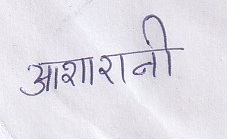 आशारानी